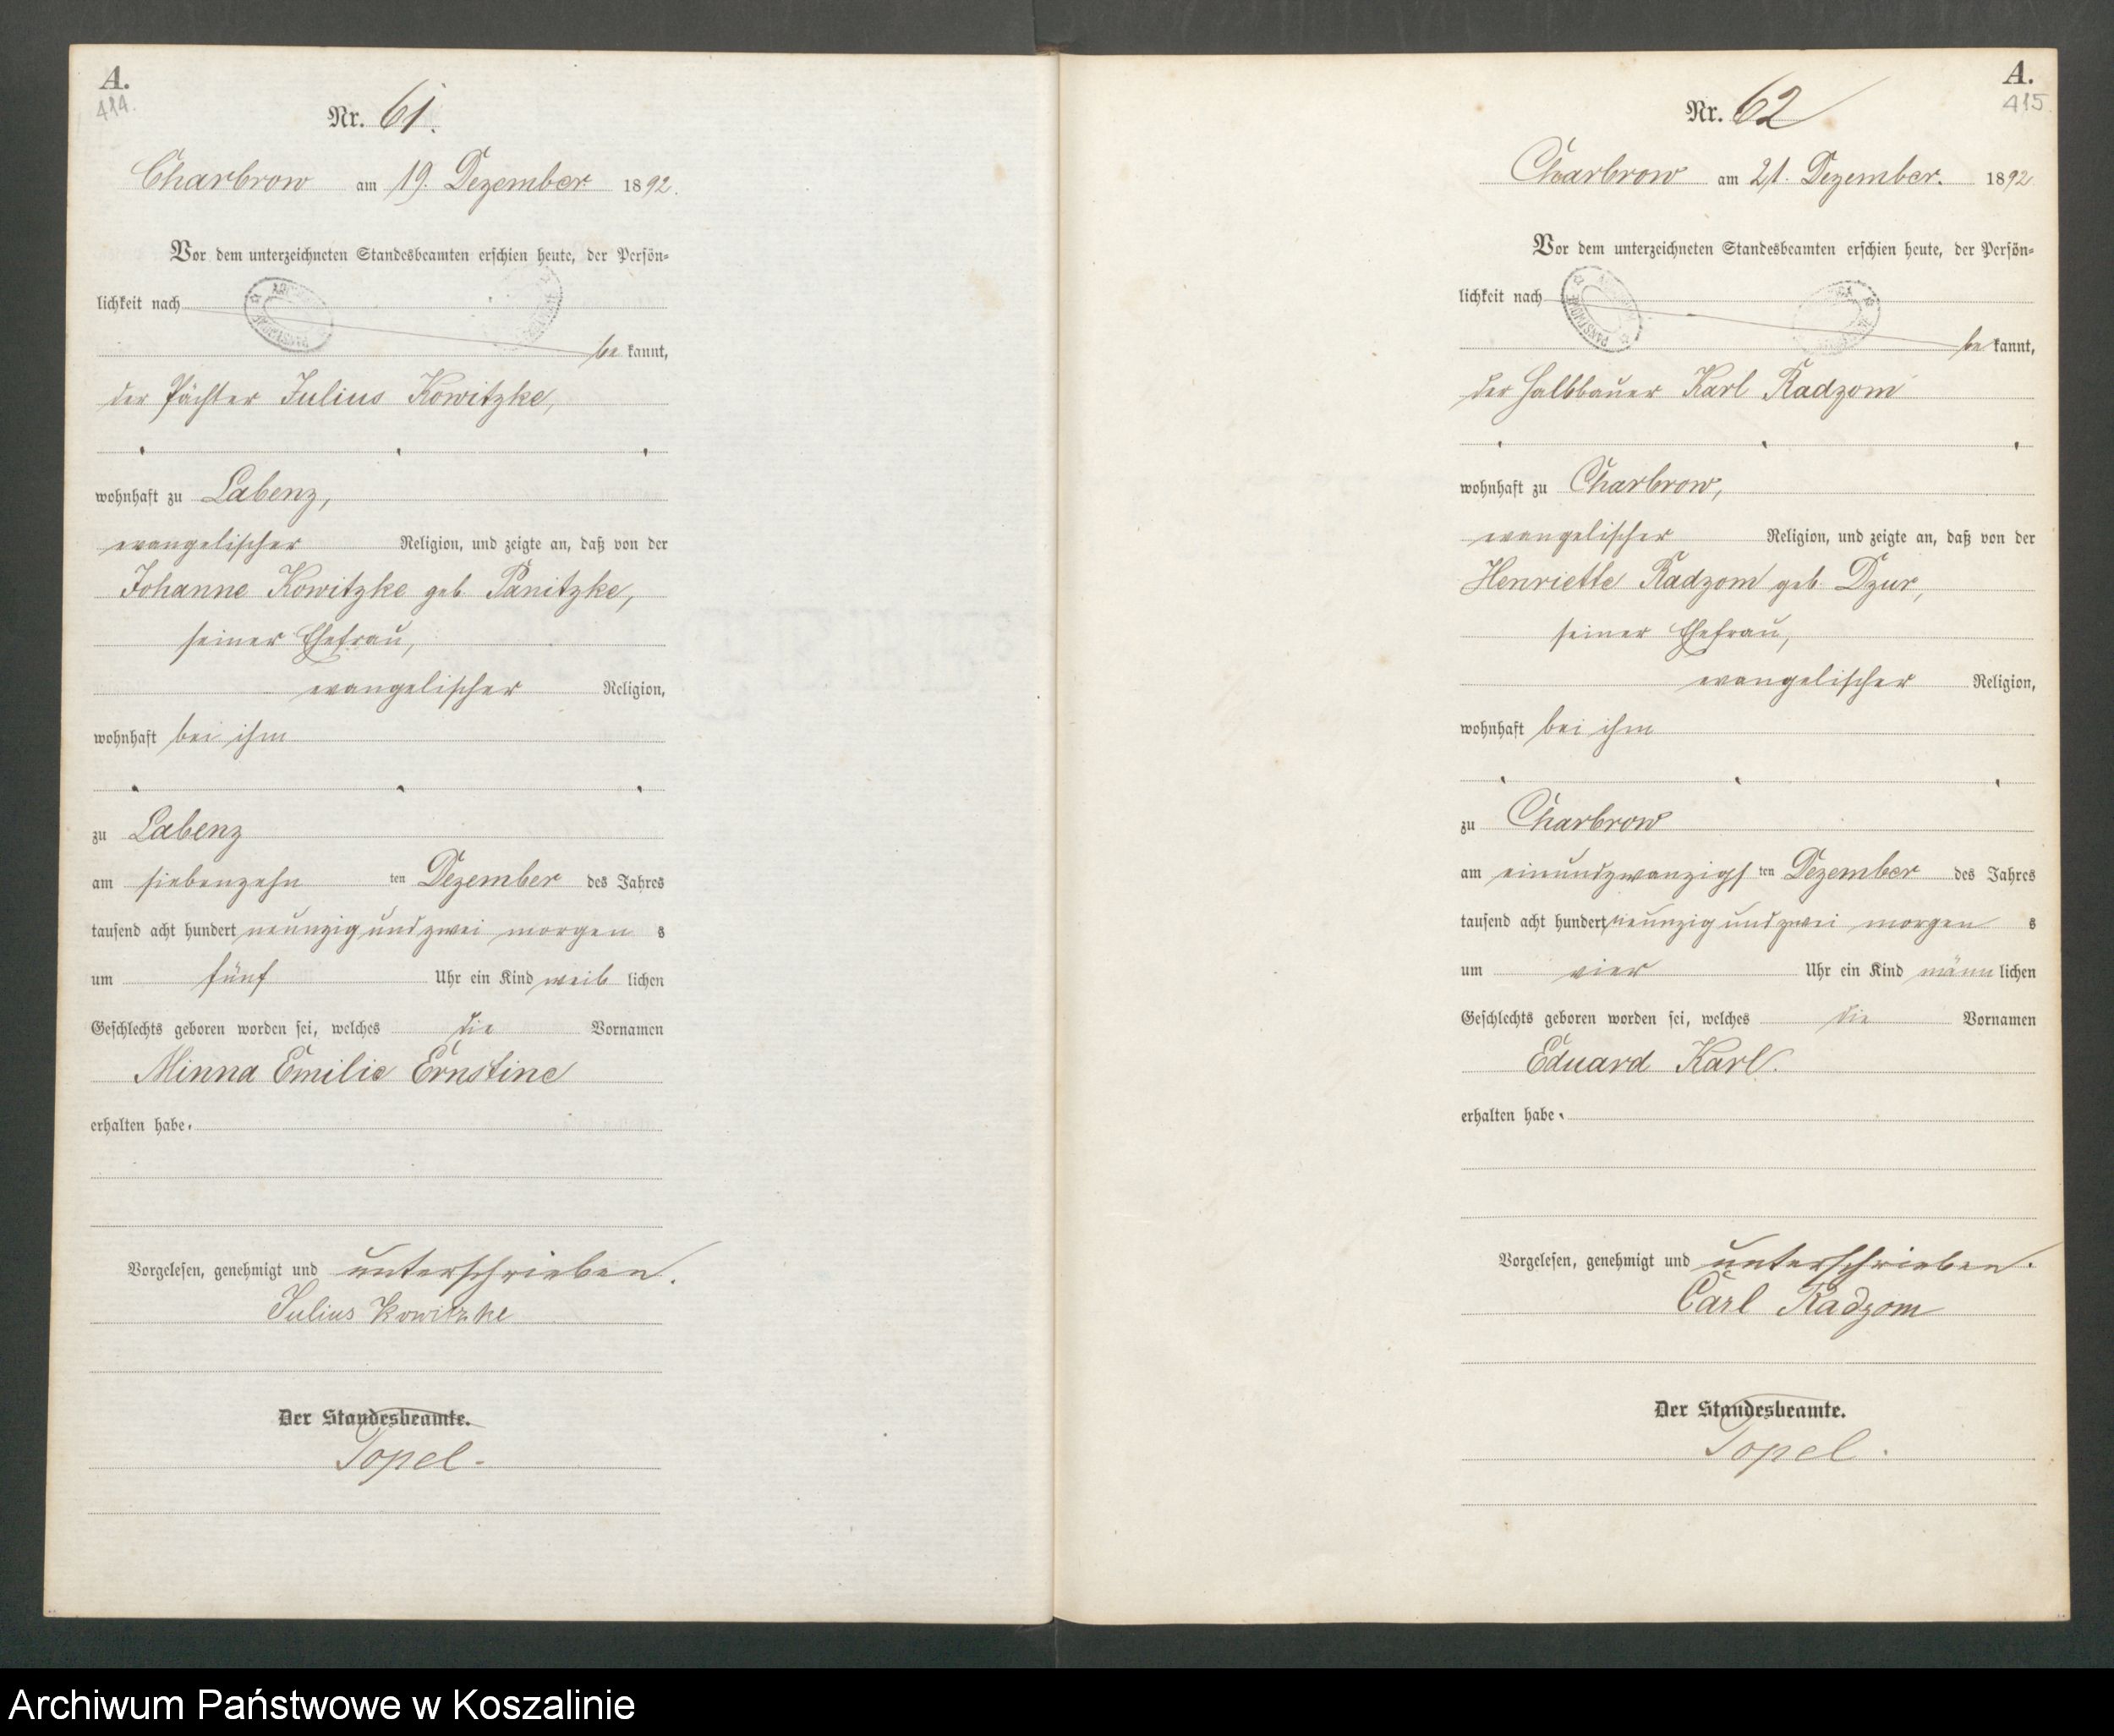 A.
414.
Nr. 61.
Charbrow am 19. Dezember 1892.
Vor dem unterzeichneten Standesbeamten erschien heute, der Persön-
lichkeit nach
be kannt,
der Pächter Julius Kowitzke,
wohnhaft zu Labenz,
evangelischer Religion, und zeigte an, daß von der
Johanne Kowitzke geb. Panitzke,
seiner Ehefrau,
evangelischer Religion,
wohnhaft bei ihm
zu Labenz
am siebenzehn ten Dezember des Jahres
tausend acht hundert neunzig und zwei morgen s
um fünf Uhr ein Kind weib lichen
Geschlechts geboren worden sei, welches die Vornamen
Minna Emilie Ernstine
erhalten habe.
Vorgelesen, genehmigt und unterschrieben.
Julius Kowitzke
Der Standesbeamte.
Topel.
A.
415
Nr. 62
Charbrow am 21. Dezember. 1892
Vor dem unterzeichneten Standesbeamten erschien heute, der Persön-
lichkeit nach
be kannt,
der Halbbauer Karl Radzom
wohnhaft zu Charbrow,
evangelischer Religion, und zeigte an, daß von der
Henriette Radzom geb. Dzur,
seiner Ehefrau,
evangelischer Religion,
wohnhaft bei ihm
zu Charbrow
am einundzwanzigs ten Dezember des Jahres
tausend acht hundert neunzig und zwei morgen s
um vier Uhr ein Kind männ lichen
Geschlechts geboren worden sei, welches die Vornamen
Eduard Karl.
erhalten habe.
Vorgelesen, genehmigt und unterschrieben.
Carl Radzom
Der Standesbeamte.
Topel.
Archiwum Państwowe w Koszalinie